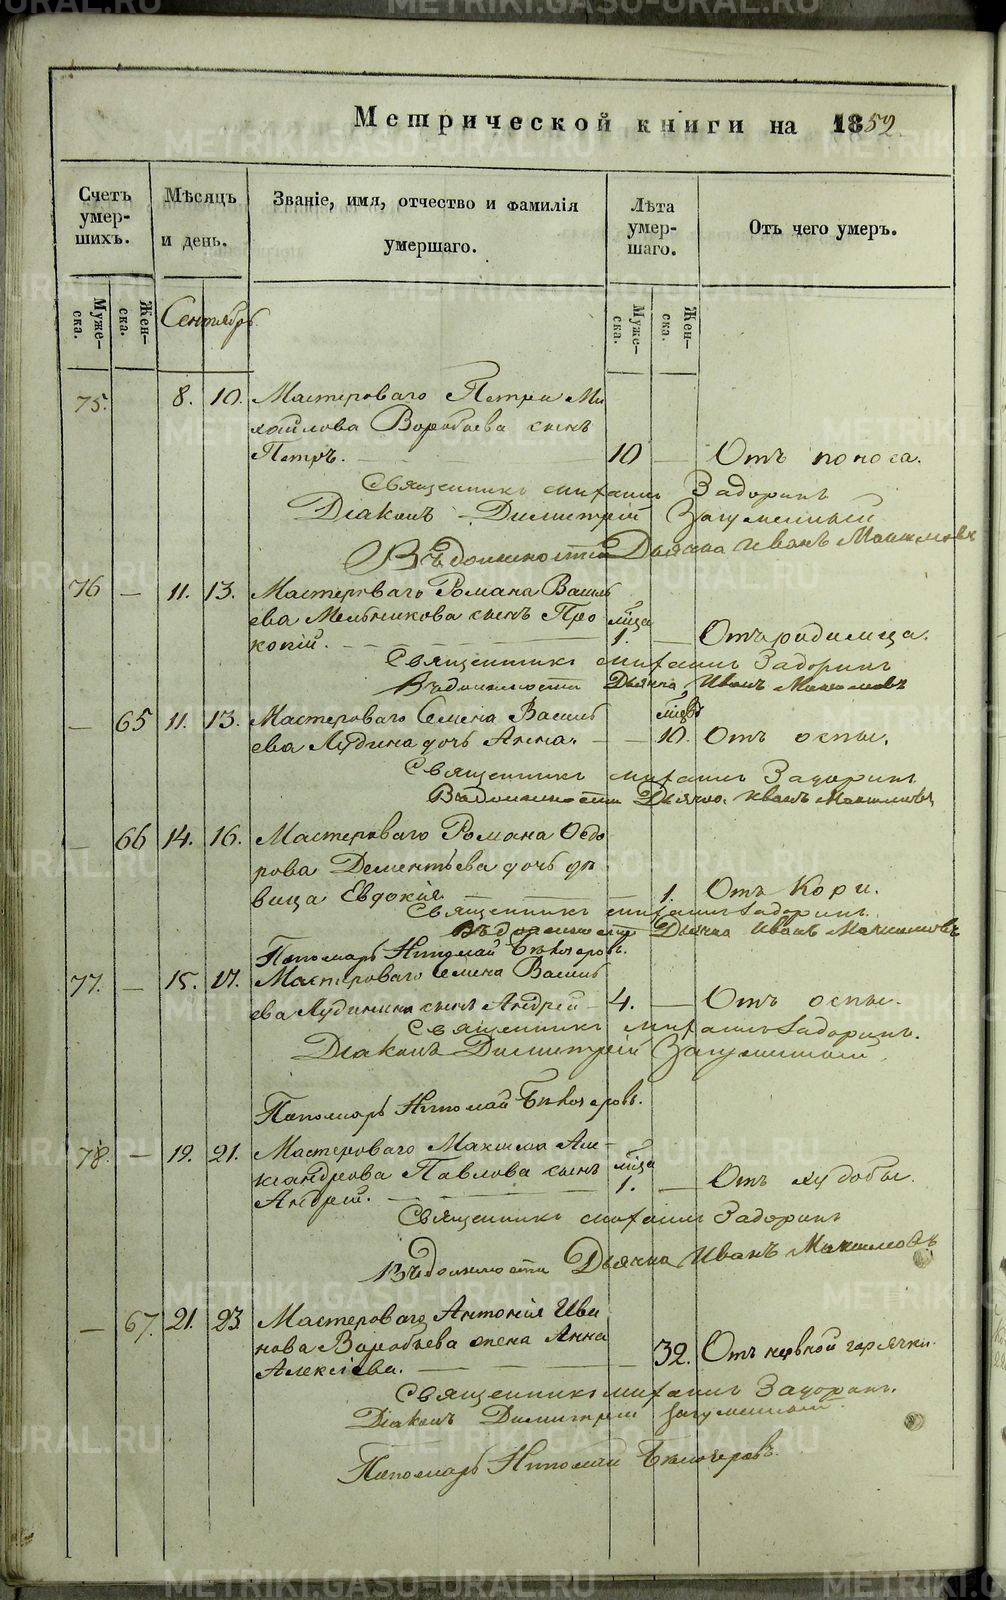 Метрической книги на 1859.
Счетъ умер-шихъ.
Мѣсяцъ и день.
Званіе, имя, отчество и фамилія умершаго.
Лѣта умер-шаго.
Отъ чего умеръ.
Муже-ска.
Жен-ска.
Сентябрь.
Муже-ска.
Жен-ска.
75. 8. 10. Мастероваго Петра Ми
хайлова Воробьева сынъ
Петръ. 10 — Отъ поноса.
Священникъ Михаилъ Задоринъ
Діаконъ Димитрій Загуменный
Въ должности Дьячка Иванъ Максимовъ
76 — 11. 13. Мастероваго Романа Василь
ева Мельникова сынъ Про мѣса
копій. 1. — Отъ родимца.
Священникъ Михаилъ Задоринъ
Въ должности Дьячка, Иванъ Максимовъ
— 65 11. 13. Мастероваго Семена Василь мѣсъ
ева Лудина дочь Анна. — 10. Отъ оспы.
Священникъ Михаилъ Задоринъ
Въ должности Дьячка. Иванъ Максимовъ
— 66 14. 16. Мастероваго Романа Ѳедо
рова Дементьева дочь дѣ
вица Евдокія. 1. Отъ Кори.
Священникъ Михаилъ Задоринъ.
Въ должности Дьячка Иванъ Максимовъ
Пономарь Николай
77. — 15. 17. Мастероваго Семена Василь
ева Лудинина сынъ Андрей 4. — Отъ оспы.
Священникъ Михаилъ Задоринъ.
Діаконъ Димитрій Загуменный
Пономарь Николай
78. — 19. 21. Мастероваго Максима Але-
ксандрова Павлова сынъ мѣса
Андрей. 1. — Отъ худобы.
Священникъ Михаилъ Задоринъ
Въ должности Дьячка Иванъ Максимовъ
— 67. 21. 23. Мастероваго Антонія Ива
нова Воробьева жена Анна
Алексіева. — 32. Отъ нервной горячки.
Священникъ Михаилъ Задоринъ.
Діаконъ Димитрій Загуменный.
Пономарь Николай
METRIKI.GASO-URAL.RU